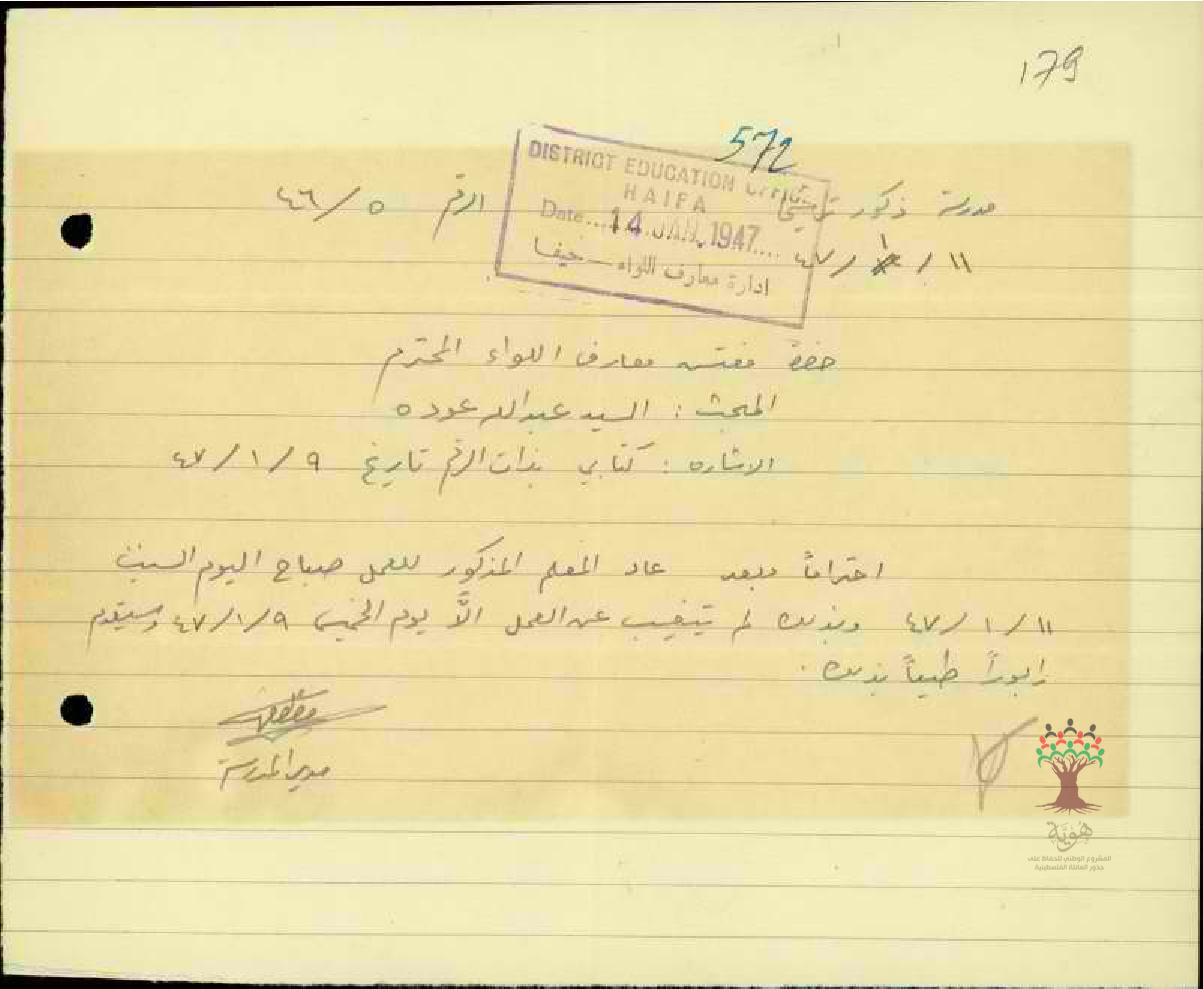 179
572
DISTRICT EDUCATION OFFICE
HAIFA
Date....14 JAN. 1947....
ادارة معارف اللواء — حيفا
مدرسة ذكور ترشيحا الرقم ٤٦/٥
٤٧/١/١١
حضرة مفتش معارف اللواء المحترم
المبحث : السيد عبدالله عوده
الاشاره : كتابي بذات الرقم تاريخ ٤٧/١/٩
احتراماً وبعد عاد المعلم المذكور للعمل صباح اليوم السبت
٤٧/١/١١ وبذلك لم يتغيب عن العمل الاَّ يوم الخميس ٤٧/١/٩ وسيقدم
رابوراً طبياً بذلك .
مدير المدرسة
هُوِيَّة
المشروع الوطني للحفاظ على
جذور العائلة الفلسطينية